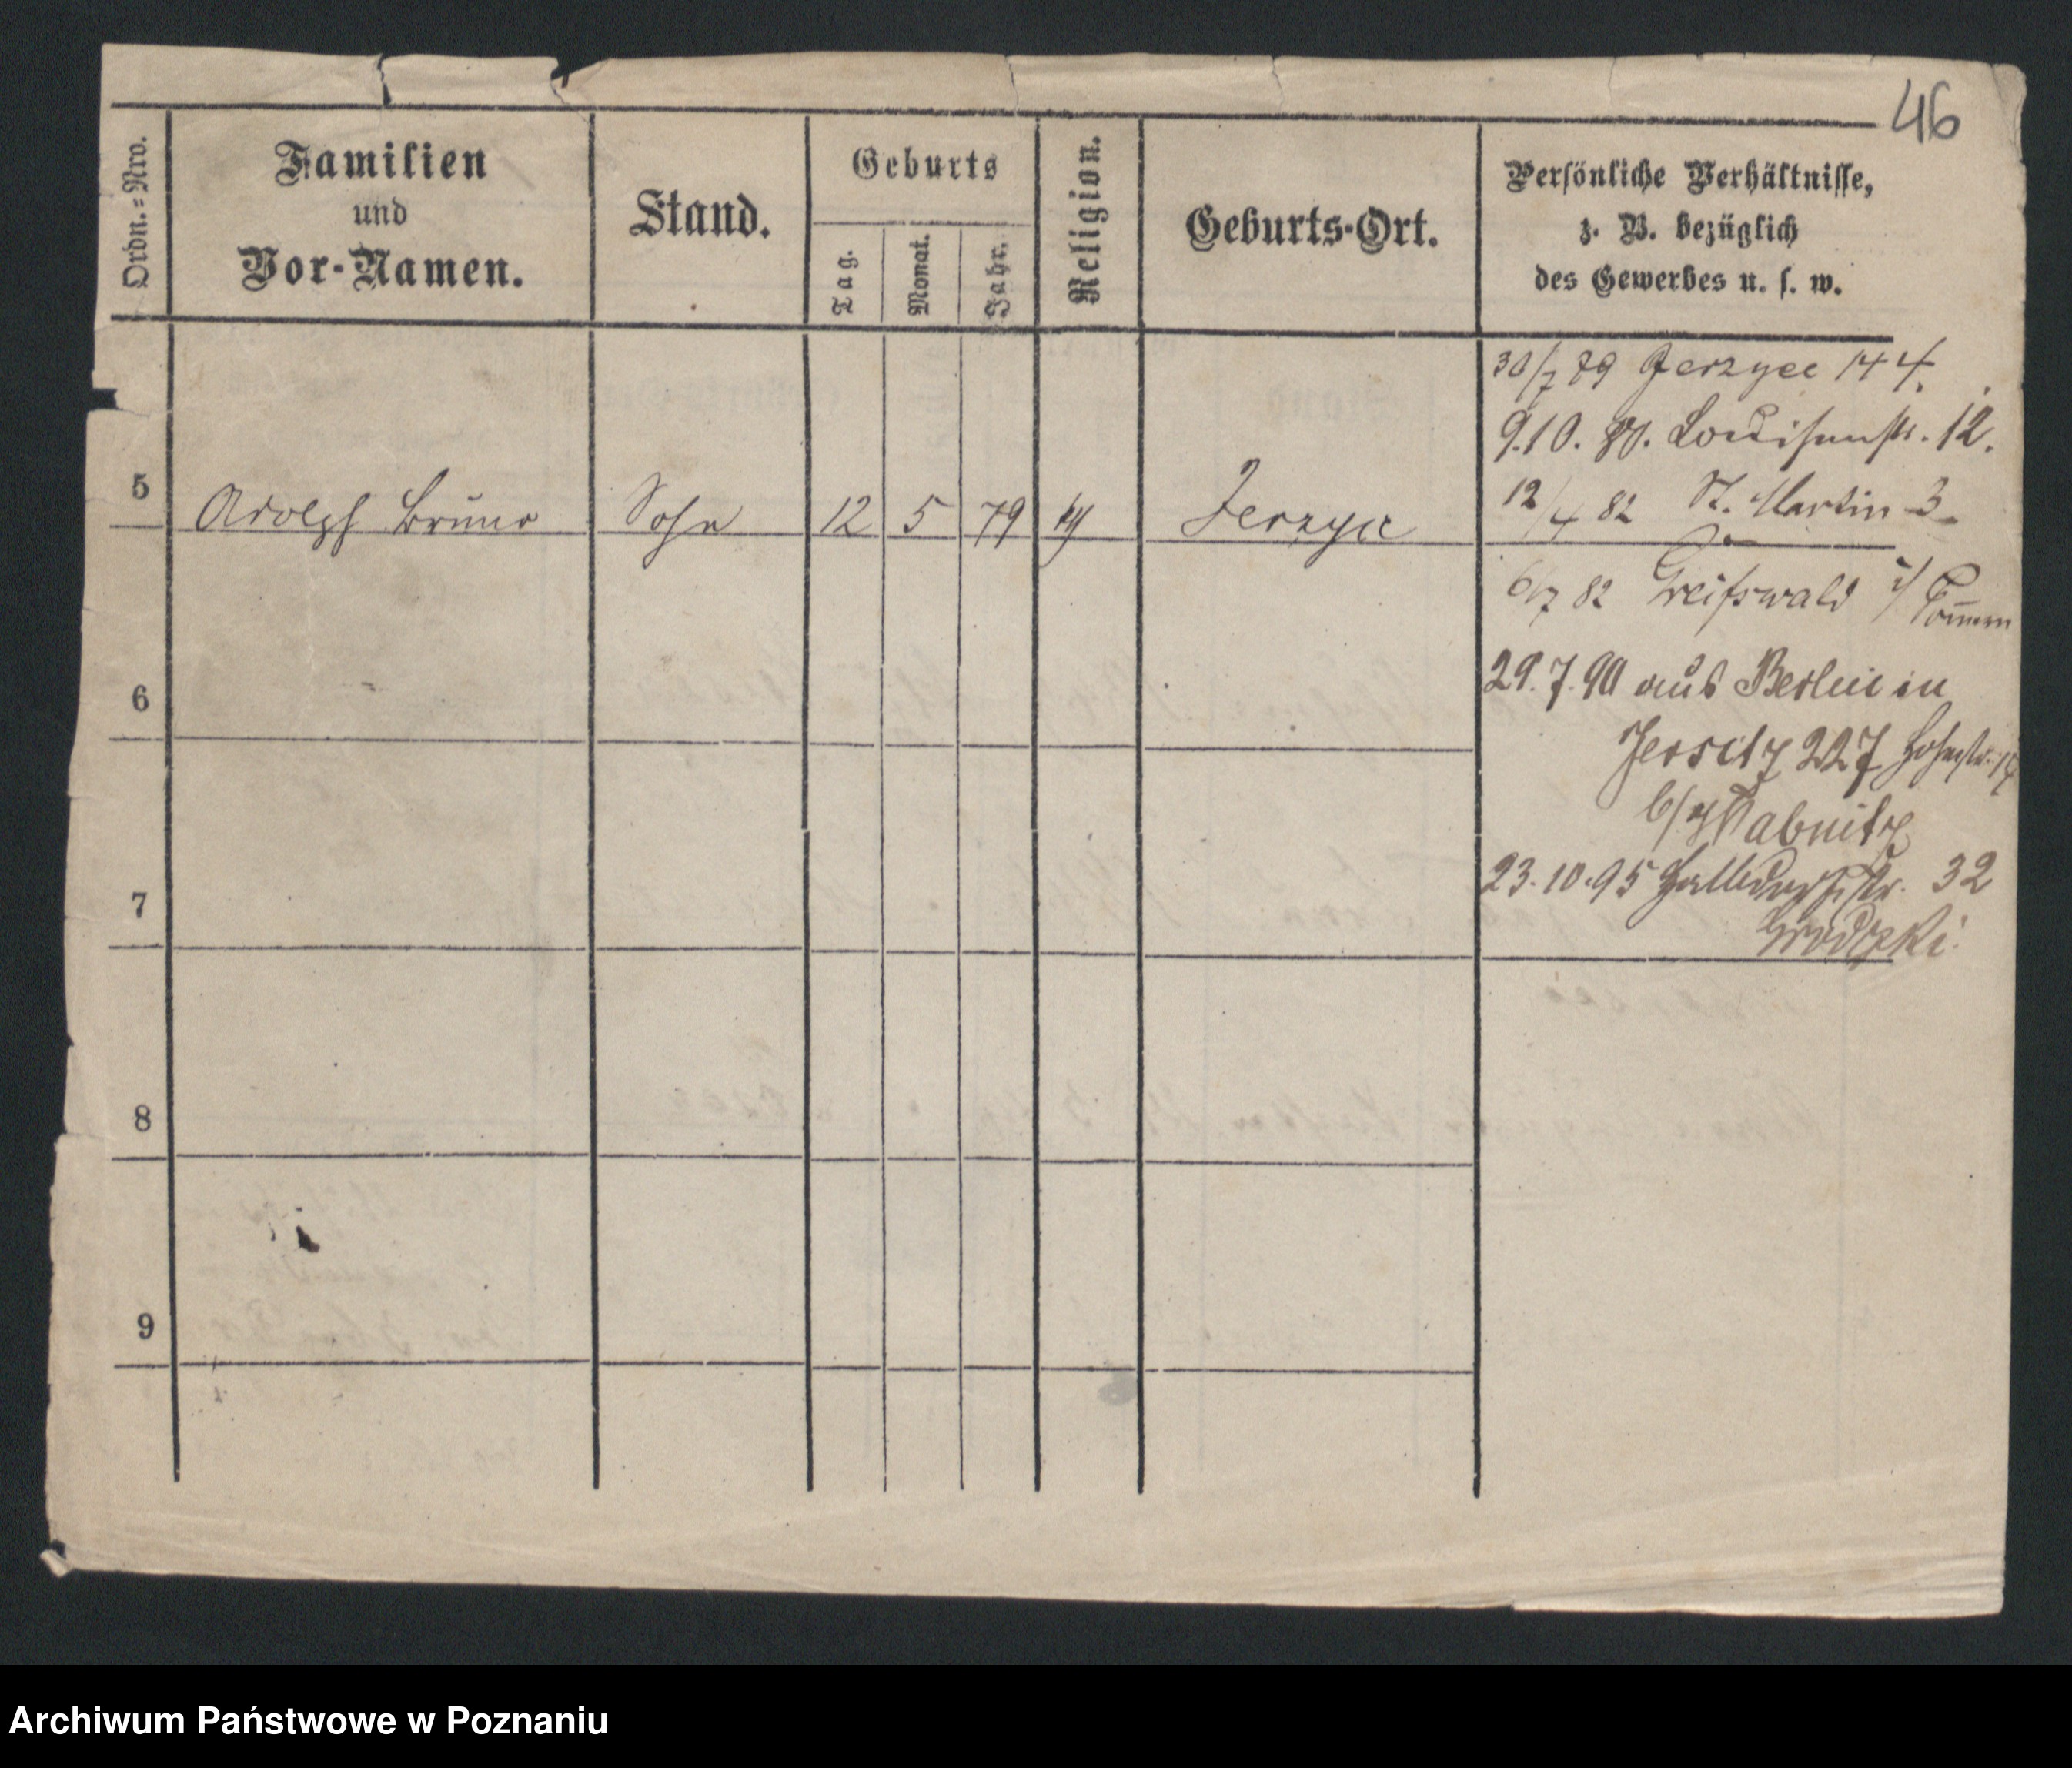 46
Ordn.-Nro.
Familien
und
Vor-Namen.
Stand.
Geburts
Tag.
Monat.
Jahr.
Religion.
Geburts-Ort.
Persönliche Verhältnisse,
z. B. bezüglich
des Gewerbes u. s. w.
30/7 79 Jerzyce 144.
9.10. 80. Louisenstr. 12.
12/4 82 St. Martin 3
5 Adolph Bruno Sohn 12 5 79 Jerzyce
6/7 82 Greifswald i/ Pommern
29.7.90 aus Berlin in
6
Jersitz 227 Hohestr.
b/ Wabnitz
23.10.95 32
7
Grodzki
8
9
Archiwum Państwowe w Poznaniu